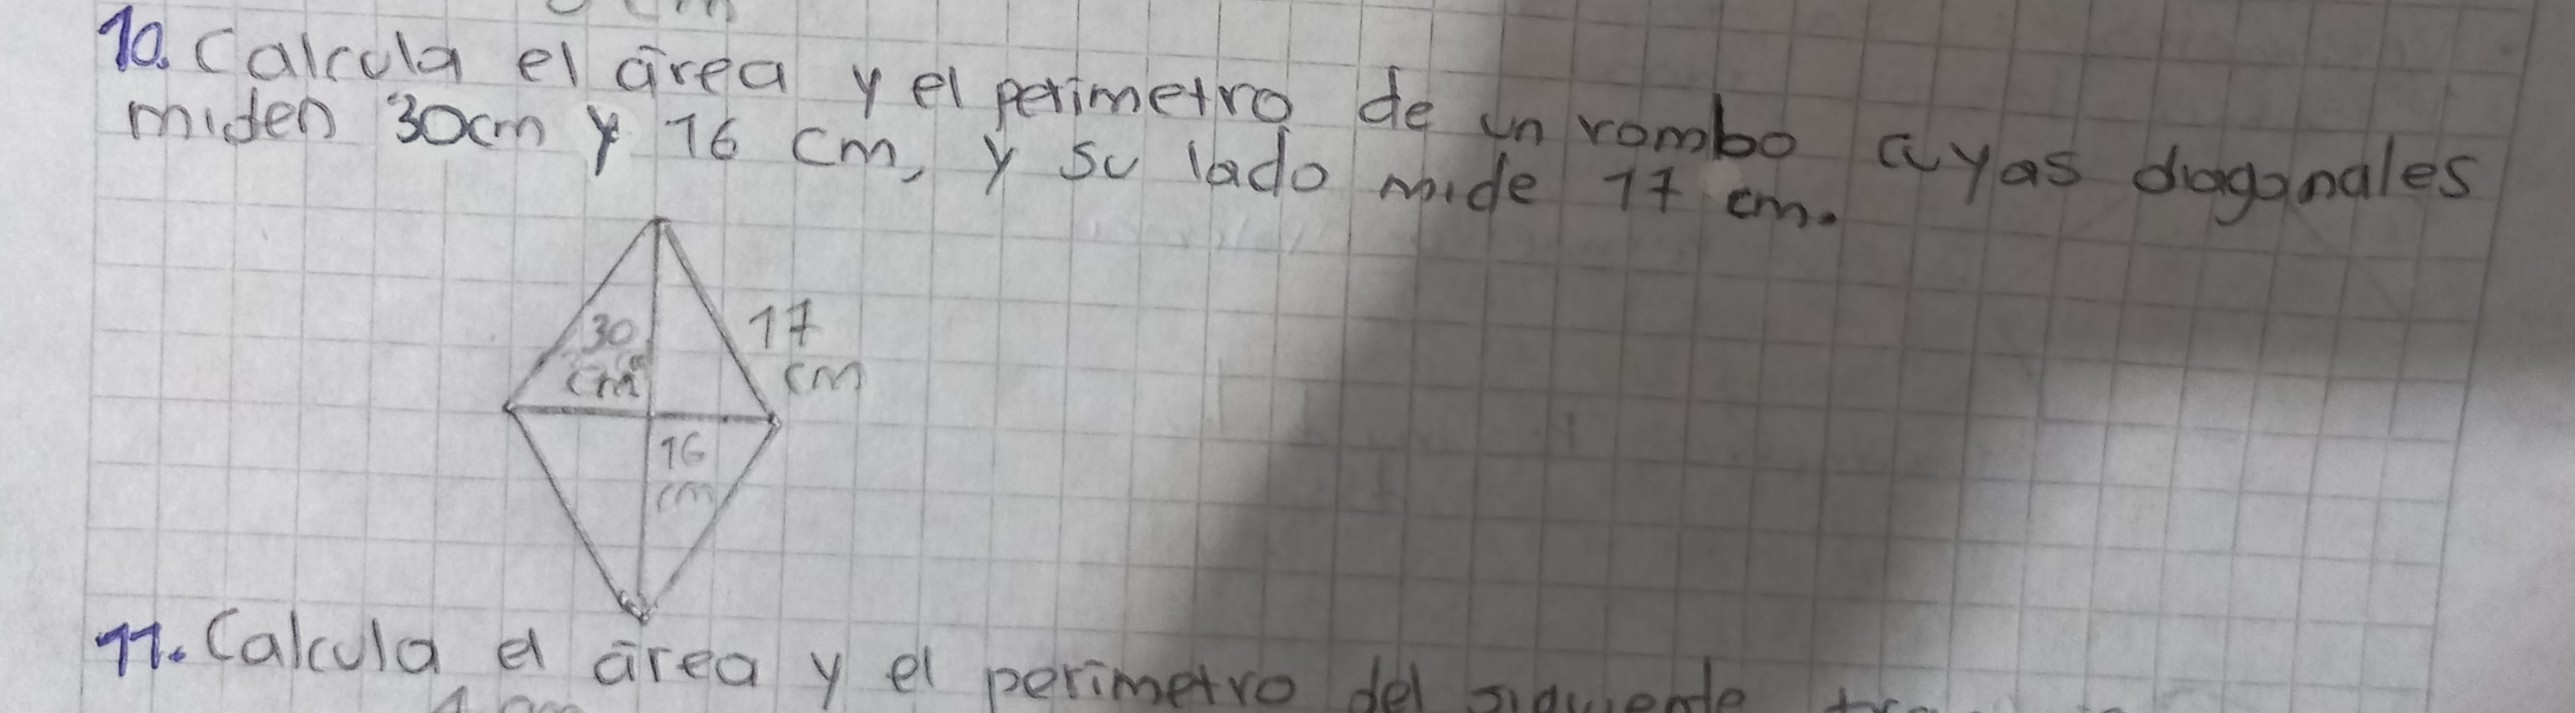 10. Calcula el área y el perimetro de un rombo cuyas diagonales
miden 30cm y 16 cm, y su lado mide 17 cm.
30
cm
17
cm
16
cm
11. Calcula el área y el perimetro del siguiente